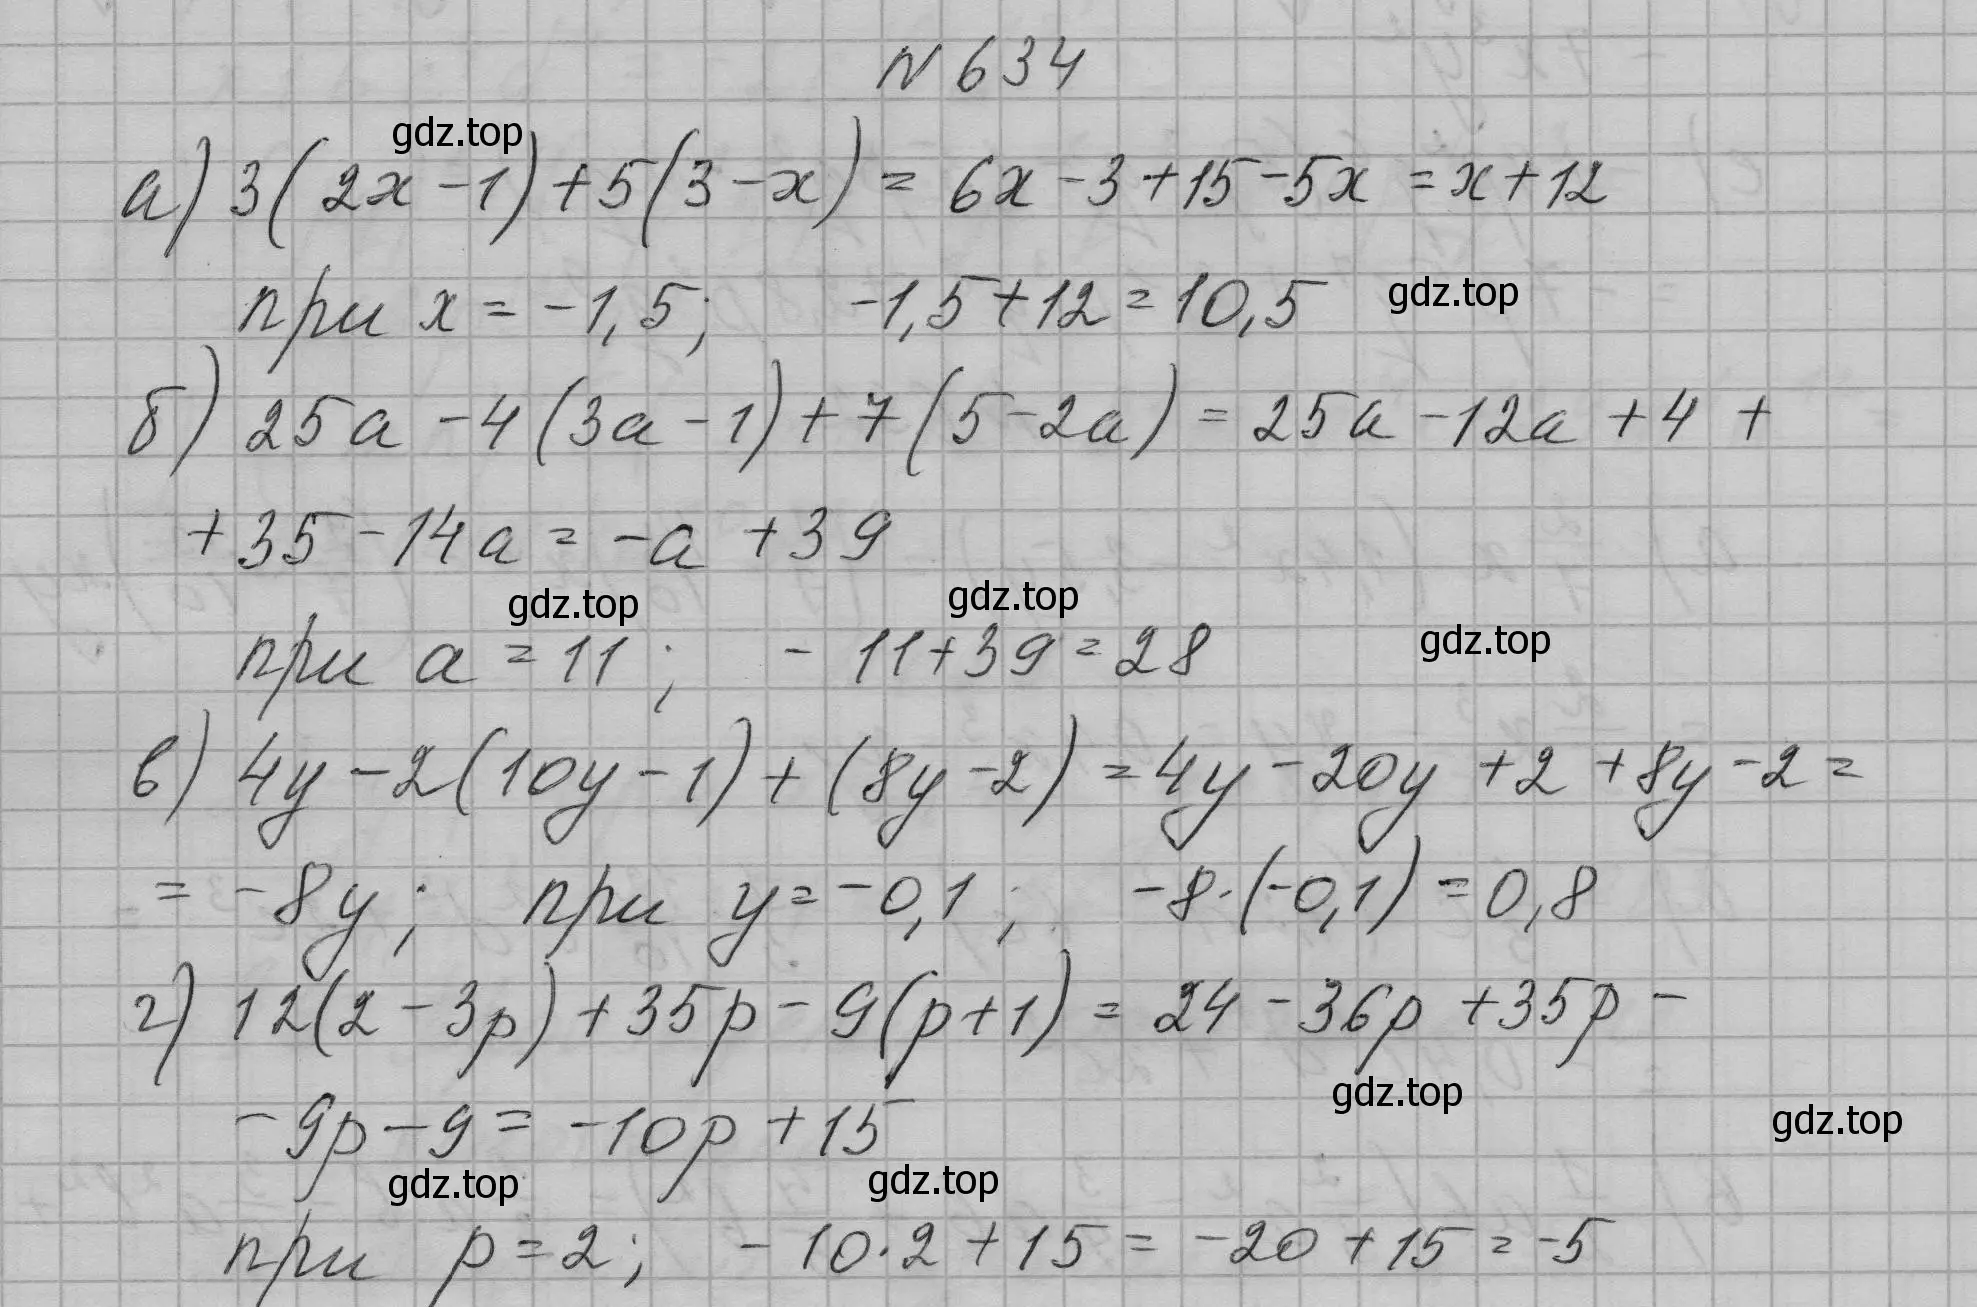 N 634
gdz.top
а) 3(2x-1)+5(3-x) = 6x-3+15-5x = x+12
при x = -1,5; -1,5+12=10,5 gdz.top
б) 25a-4(3a-1)+7(5-2a) = 25a-12a+4+
+35-14a = -a+39
gdz.top gdz.top
при a = 11; -11+39=28 gdz.top
в) 4y-2(10y-1)+(8y-2) = 4y-20y+2+8y-2=
= -8y; при y=-0,1; -8·(-0,1)=0,8
г) 12(2-3p)+35p-9(p+1) = 24-36p+35p-
gdz.top
-9p-9 = -10p+15 gdz.top
gdz.top gdz.top
при p=2; -10·2+15 = -20+15=-5